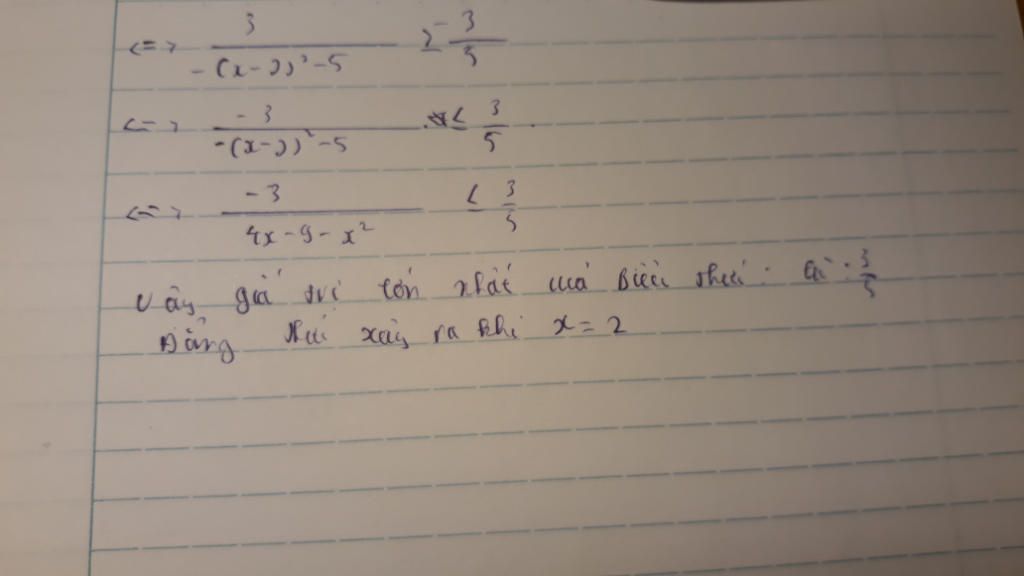 <=> 3/(-(x-2)²-5) ≥ -3/5
<=> -3/(-(x-2)²-5) ≤ 3/5.
<=> -3/(4x-9-x²) ≤ 3/5
Vậy giá trị lớn nhất của biểu thức: là: 3/5
Đẳng thức xảy ra khi x = 2